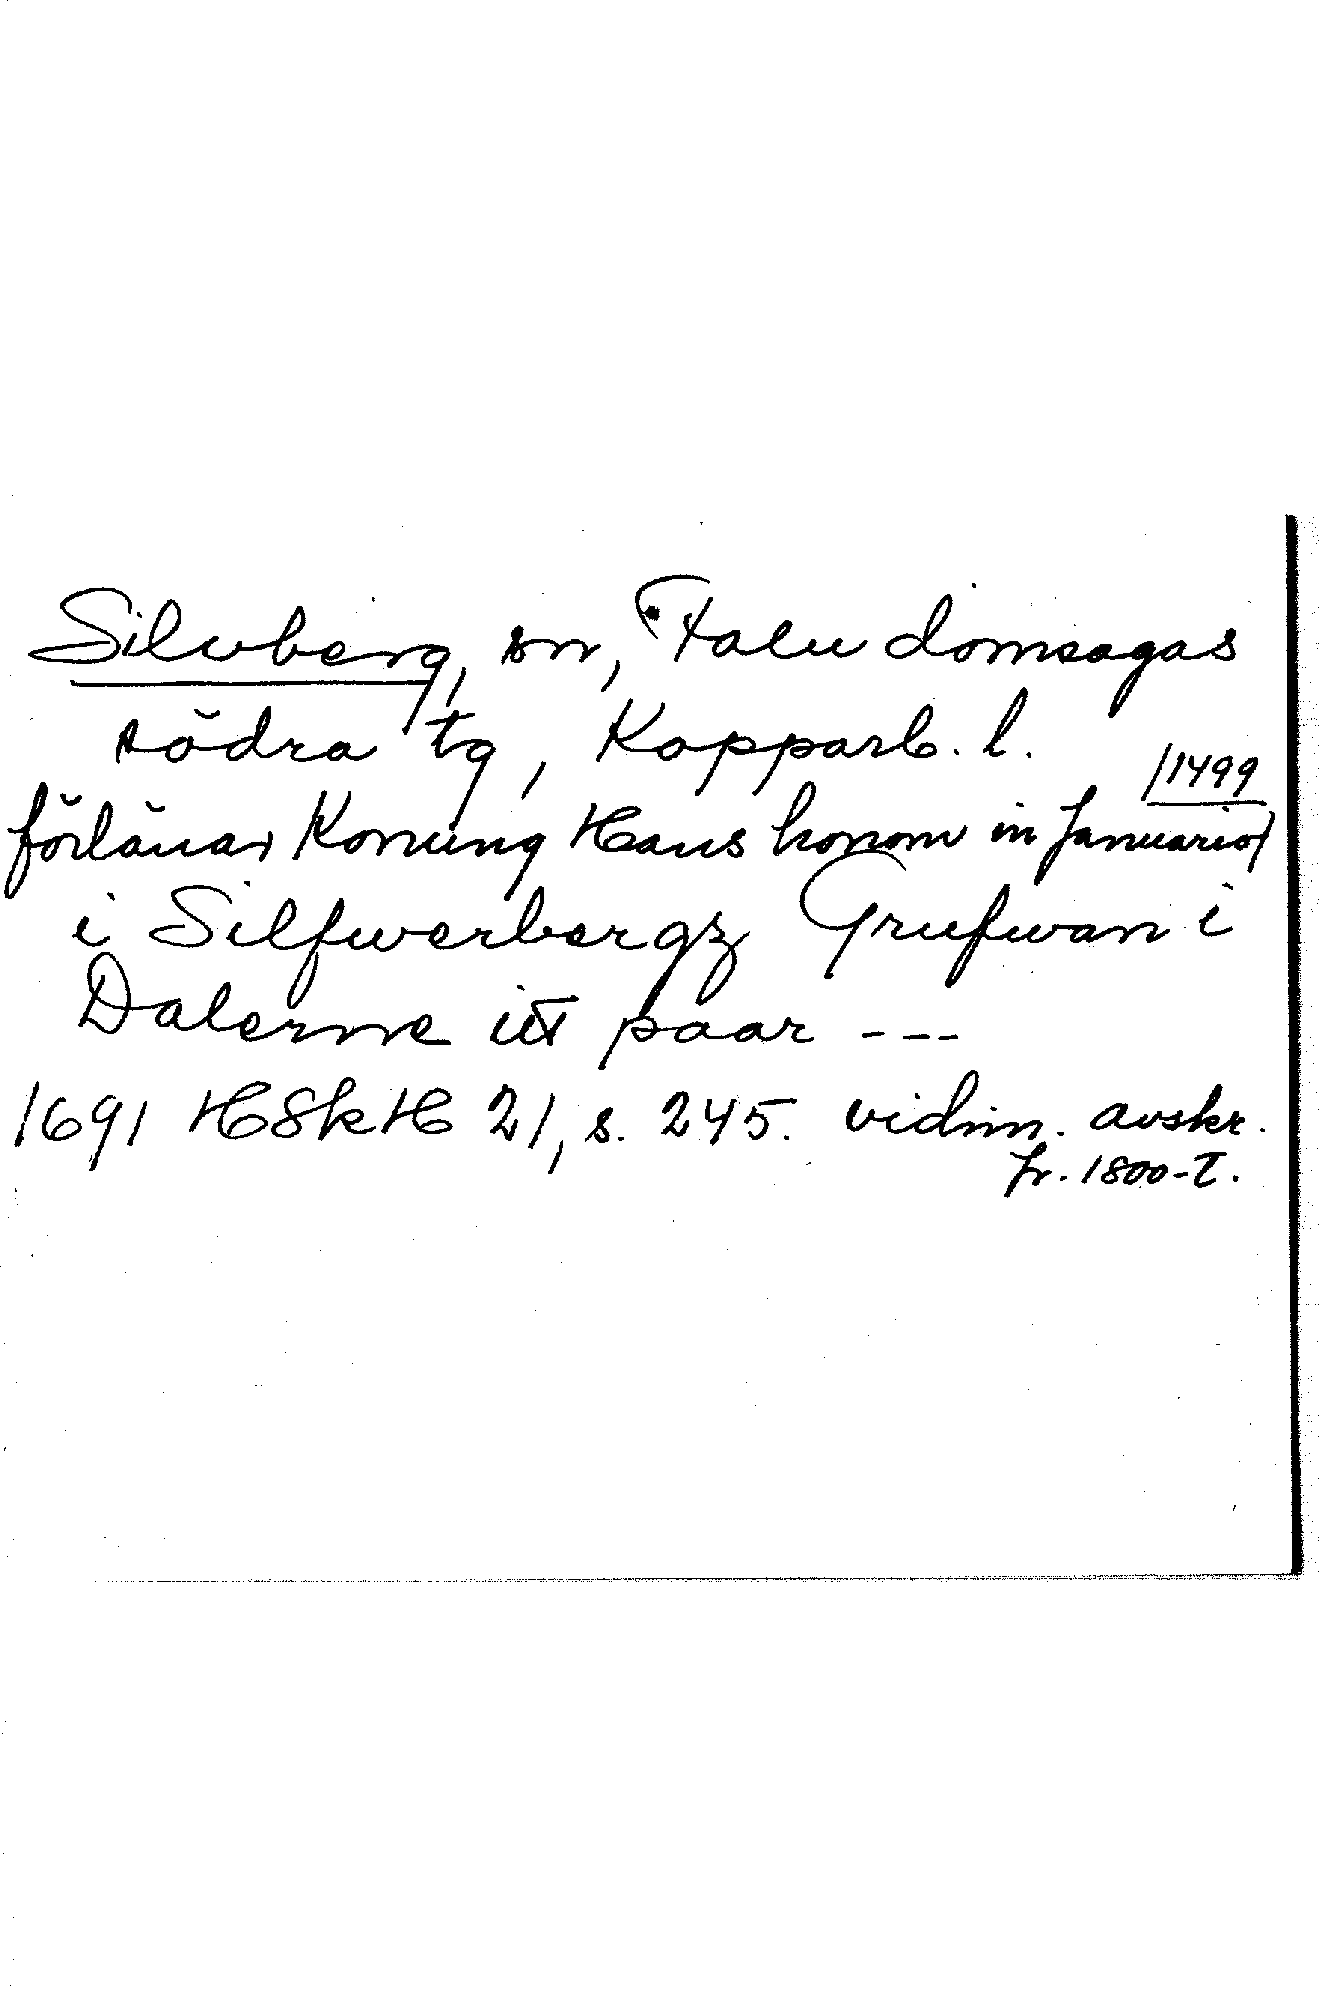 Silvberg, sn, Falu domsagas
södra tg, Kopparb. l.
/1499
förlänar Konung Hans honom in Januario/
i Silfwerbergz Grufwan i
Dalerne itt paar ---
1691 HSkH 21, s. 245. vidim. avskr.
fr. 1800-t.